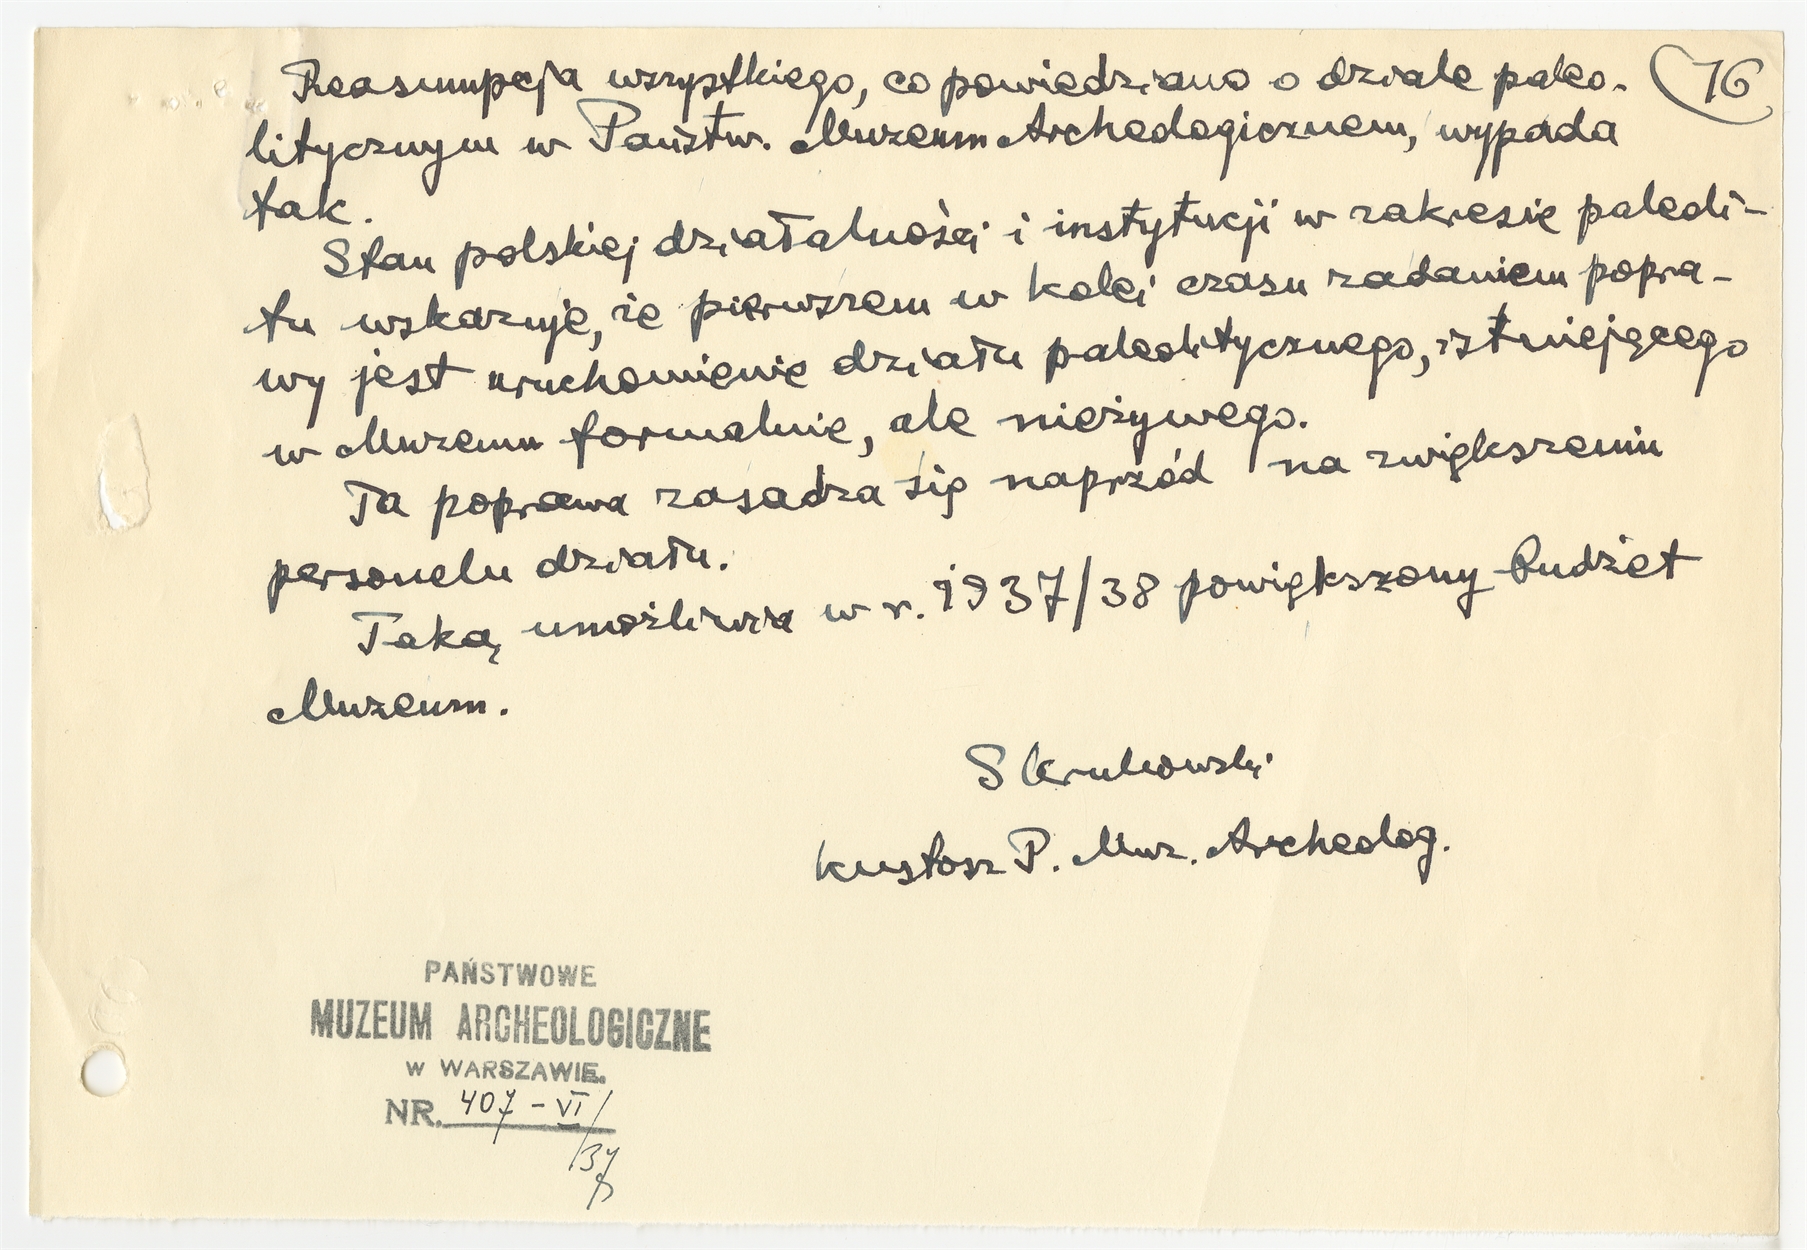 Reasumpcja wszystkiego, co powiedziano o dziale paleo-
16
litycznym w Państw. Muzeum Archeologicznem, wypada
tak.
Stan polskiej działalności i instytucji w zakresie paleoli-
tu wskazuje, że pierwszem w kolei czasu zadaniem popra-
wy jest uruchomienie działu paleolitycznego, istniejącego
w Muzeum formalnie, ale nieżywego.
Ta poprawa zasadza się naprzód na zwiększeniu
personelu działu.
Taką umożliwia w r. 1937/38 powiększony budżet
Muzeum.
S Krukowski
kustosz P. Muz. Archeolog.
PAŃSTWOWE
MUZEUM ARCHEOLOGICZNE
W WARSZAWIE.
NR. 407 - VI/
/37